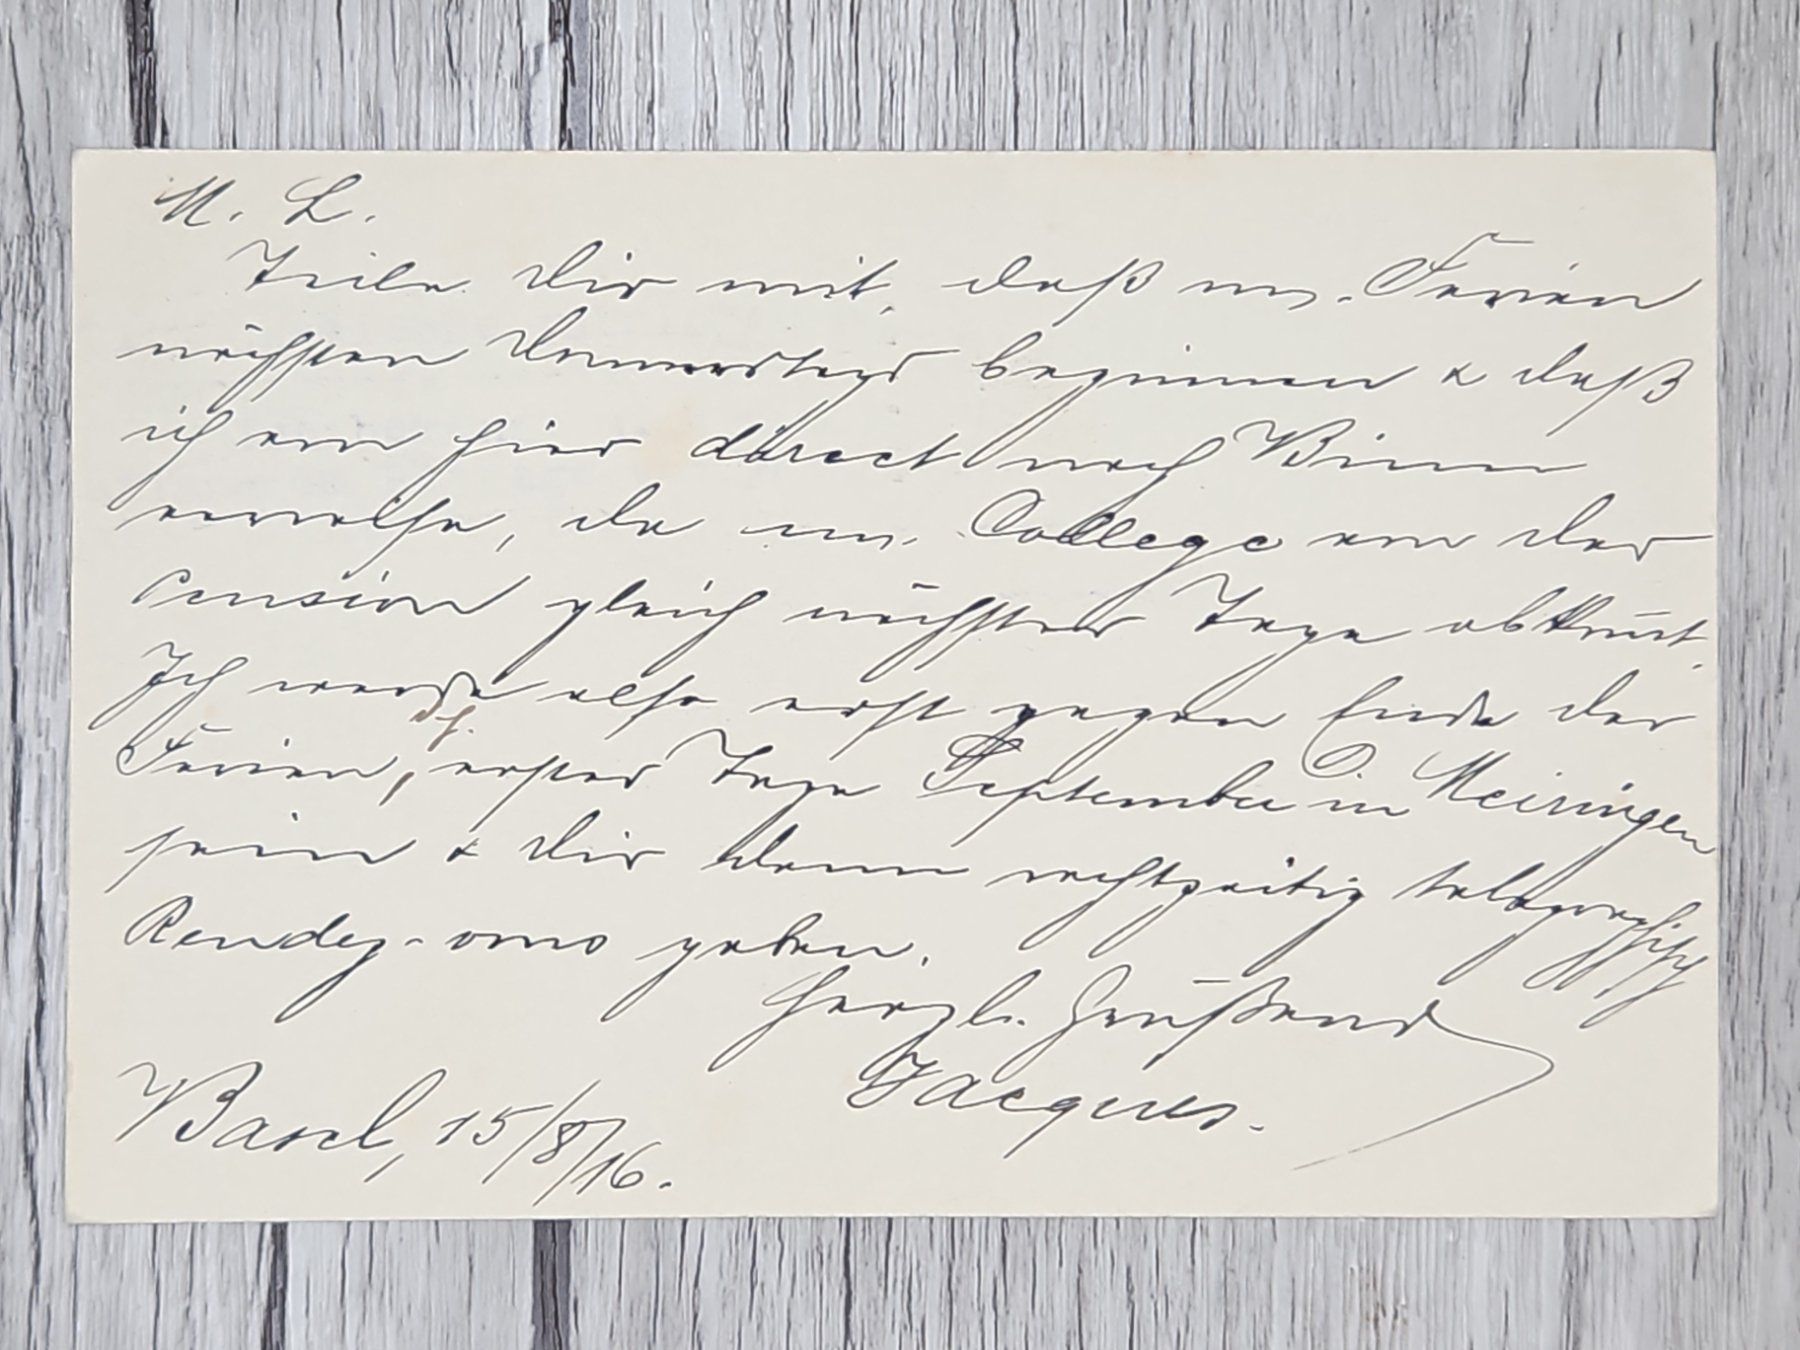 M. L.
Teile Dir mit, daß m. Ferien
nächsten Donnerstag beginnen & daß
ich von hier direct nach Binn
verreise, da m. College von der
Pension gleich nächster Tage abkünt.
Ich werde also erst gegen Ende der
Ferien, d. h. erster Tage September in Meiringen
sein & Dir dann rechtzeitig telegraphisch
Rendez-vous geben.
Herzl. Grüßend
Jacques.
Basel, 15/8/16.